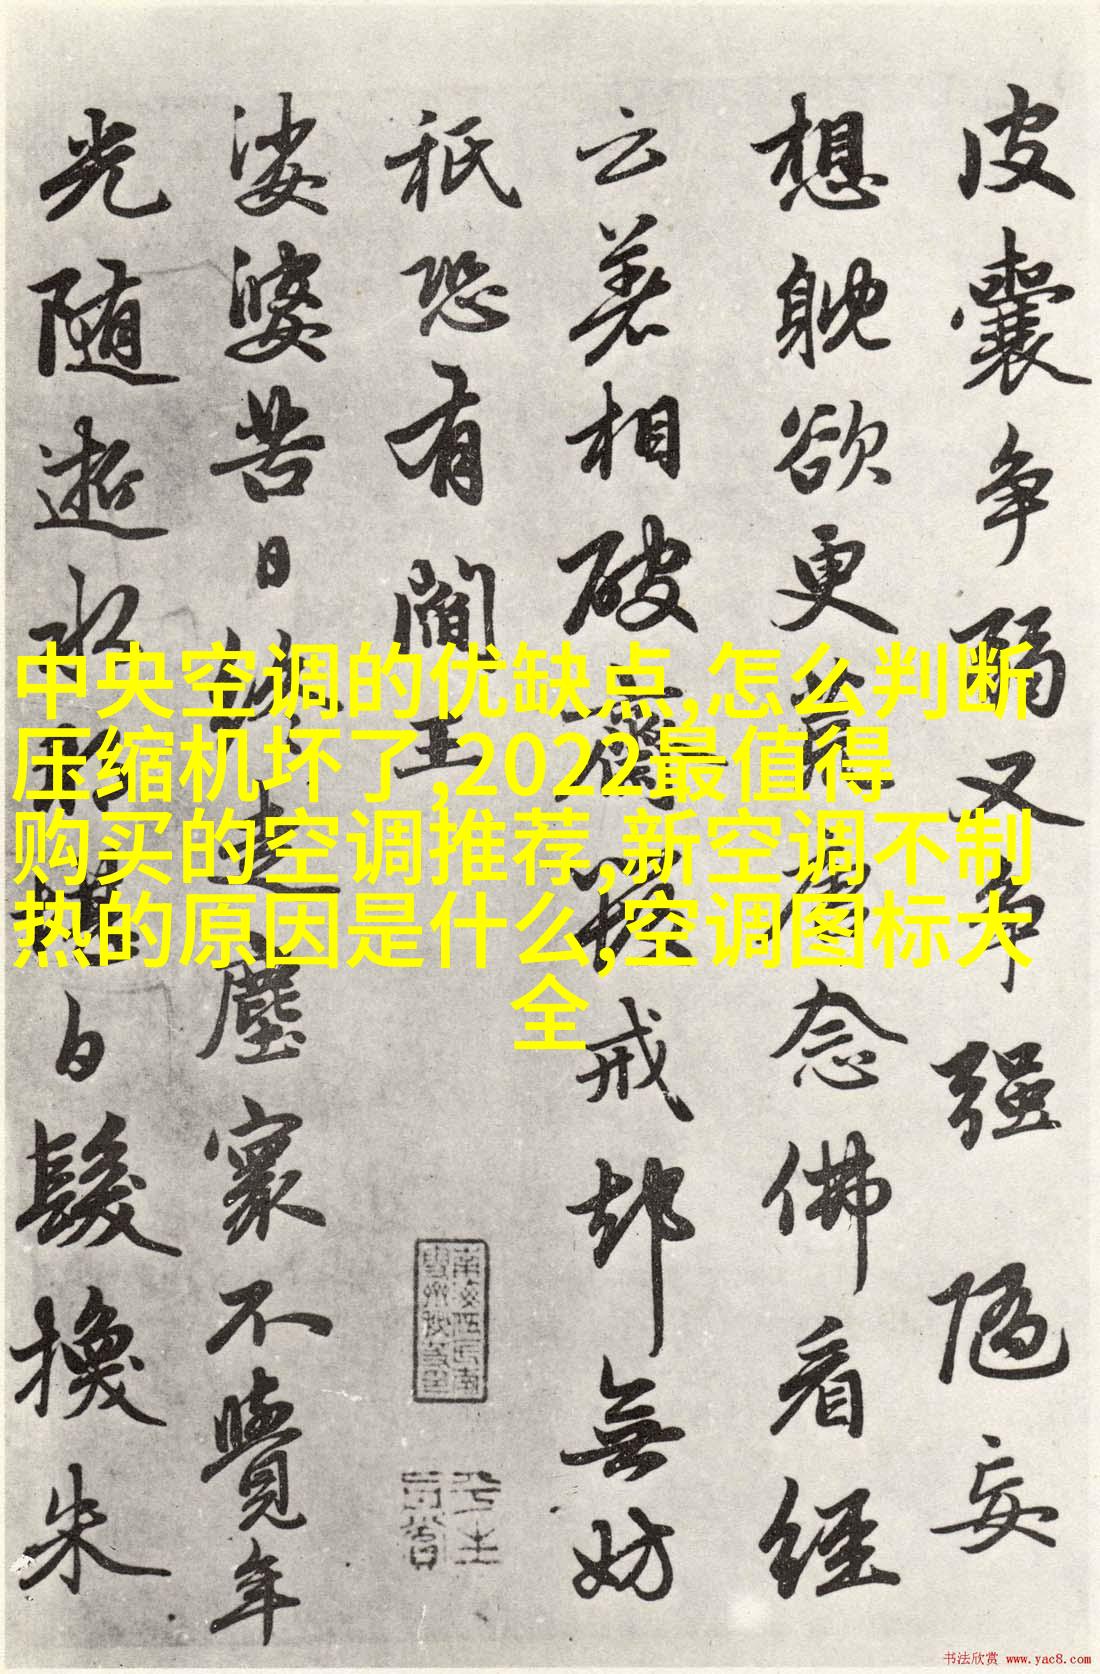 皮囊争弱又争强随妄
想躭欲更
念佛看经
云若相破
戒却無妨
祇恐有阎王
娑婆苦日
走塵寰不覺年
光随逝水
白髮換朱
中央空调的优缺点,怎么判断
压缩机坏了,2022最值得
购买的空调推荐,新空调不制
热的原因是什么,空调图标大
全
书法欣赏 www.yac8.com